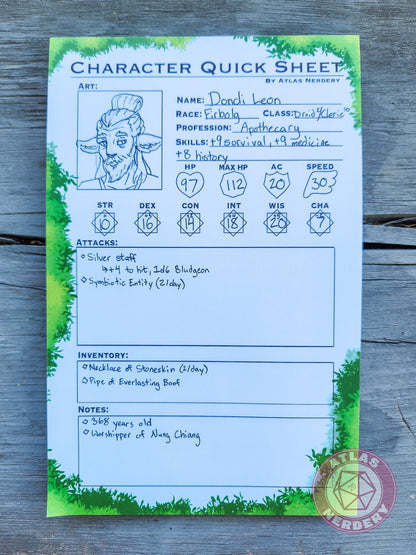 CHARACTER QUICK SHEET
BY ATLAS NERDERY
ART:
NAME: Dondi Leon
RACE: Firbolg CLASS: Druid 4/Cleric 6
PROFESSION: Apothecary
SKILLS: +9 survival, +9 medicine
+8 history
HP MAX HP AC SPEED
97 112 20 30
STR DEX CON INT WIS CHA
10 16 14 18 20 7
ATTACKS:
Silver staff
↳ +4 to hit, 1d6 Bludgeon
Symbiotic Entity (2/day)
INVENTORY:
Necklace of Stoneskin (1/day)
Pipe of Everlasting Boof
NOTES:
368 years old
Worshipper of Nung Chiang
ATLAS
NERDERY